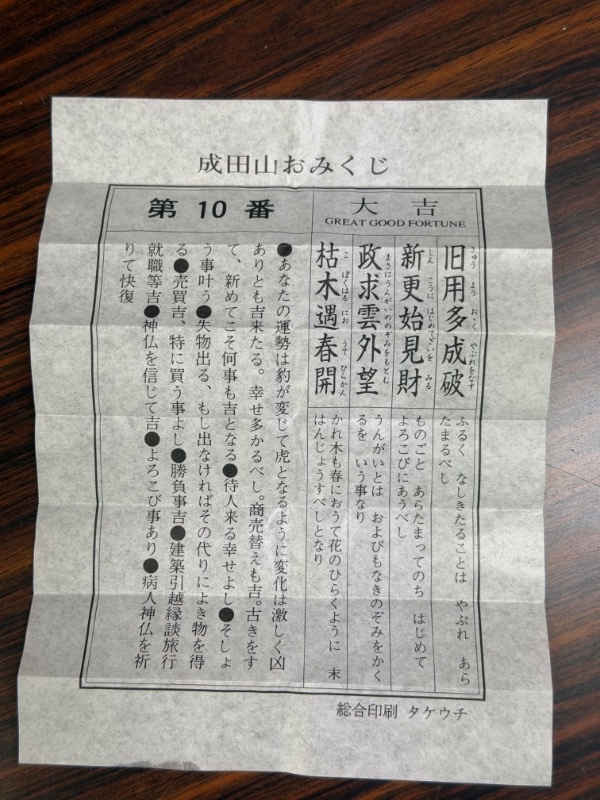 成田山おみくじ
大吉
GREAT GOOD FORTUNE
第10番
旧用多成破
きゅう よう おく やぶれをなす
新更始見財
しん こうに はじめてざいを みる
政求雲外望
まさにうんがいののぞみをもとむ
枯木遇春開
こ ぼくはる にお うて ひらかん
ふるく なしきたることは やぶれ あら
たまるべし
ものごと あらたまってのち はじめて
よろこびにあうべし
うんがいとは およびもなきのぞみをかく
るを いう事なり
かれ木も春におうて花のひらくように 末
はんじょうすべしとなり
●あなたの運勢は豹が変じて虎となるように変化は激しく凶
ありとも吉来たる。幸せ多かるべし。商売替えも吉。古きをす
て、新めてこそ何事も吉となる●待人来る幸せよし●そしょ
う事叶う●失物出る、もし出なければその代りによき物を得
る●売買吉、特に買う事よし●勝負事吉●建築引越縁談旅行
就職等吉●神仏を信じて吉●よろこび事あり●病人神仏を祈
りて快復
総合印刷 タケウチ